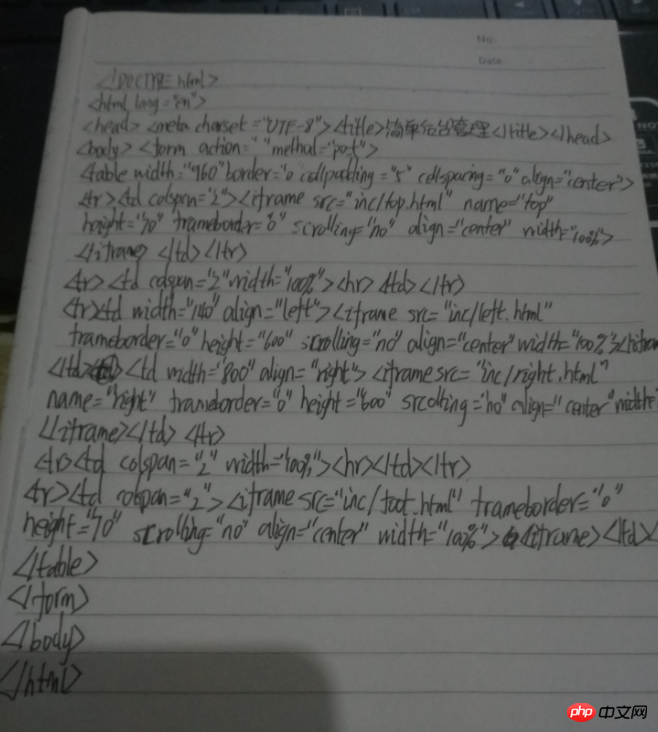 No.
Date
<!DOCTYPE html>
<html lang="en">
<head> <meta charset="UTF-8"> <title>简单后台管理</title></head>
<body> <form action=" " methul="post">
<table width="960" border="0 collpadding="5" cellsparing="0" align="center">
<tr><td colspan="2"><iframe src="inc/top.html" name="top"
height="70" trameborder="0" scrolling="no" align="center" width="100%">
</iframe> </td></tr>
<tr> <td colspan="2" width="100%"><hr> </td></tr>
<tr><td width="140" align="left"><iframe src="inc/left.html"
trameborder="0" height="600" scrolling="no" align="center" width="100%"></iframe
</td> <td width="800" align="right"> <iframe src="inc/right.html"
name="right" trameborder="0" height="600" scrolting="no" align="center" width=
</iframe></td> </tr>
<tr><td colspan="2" width="100%"><hr></td></tr>
<tr><td colspan="2"> <iframe src="inc/foot.html" trameborder="0"
height="70" scrolling="no" align="center" width="100%"> </iframe></td><
</table>
</form>
</body>
</html>
php 中文网